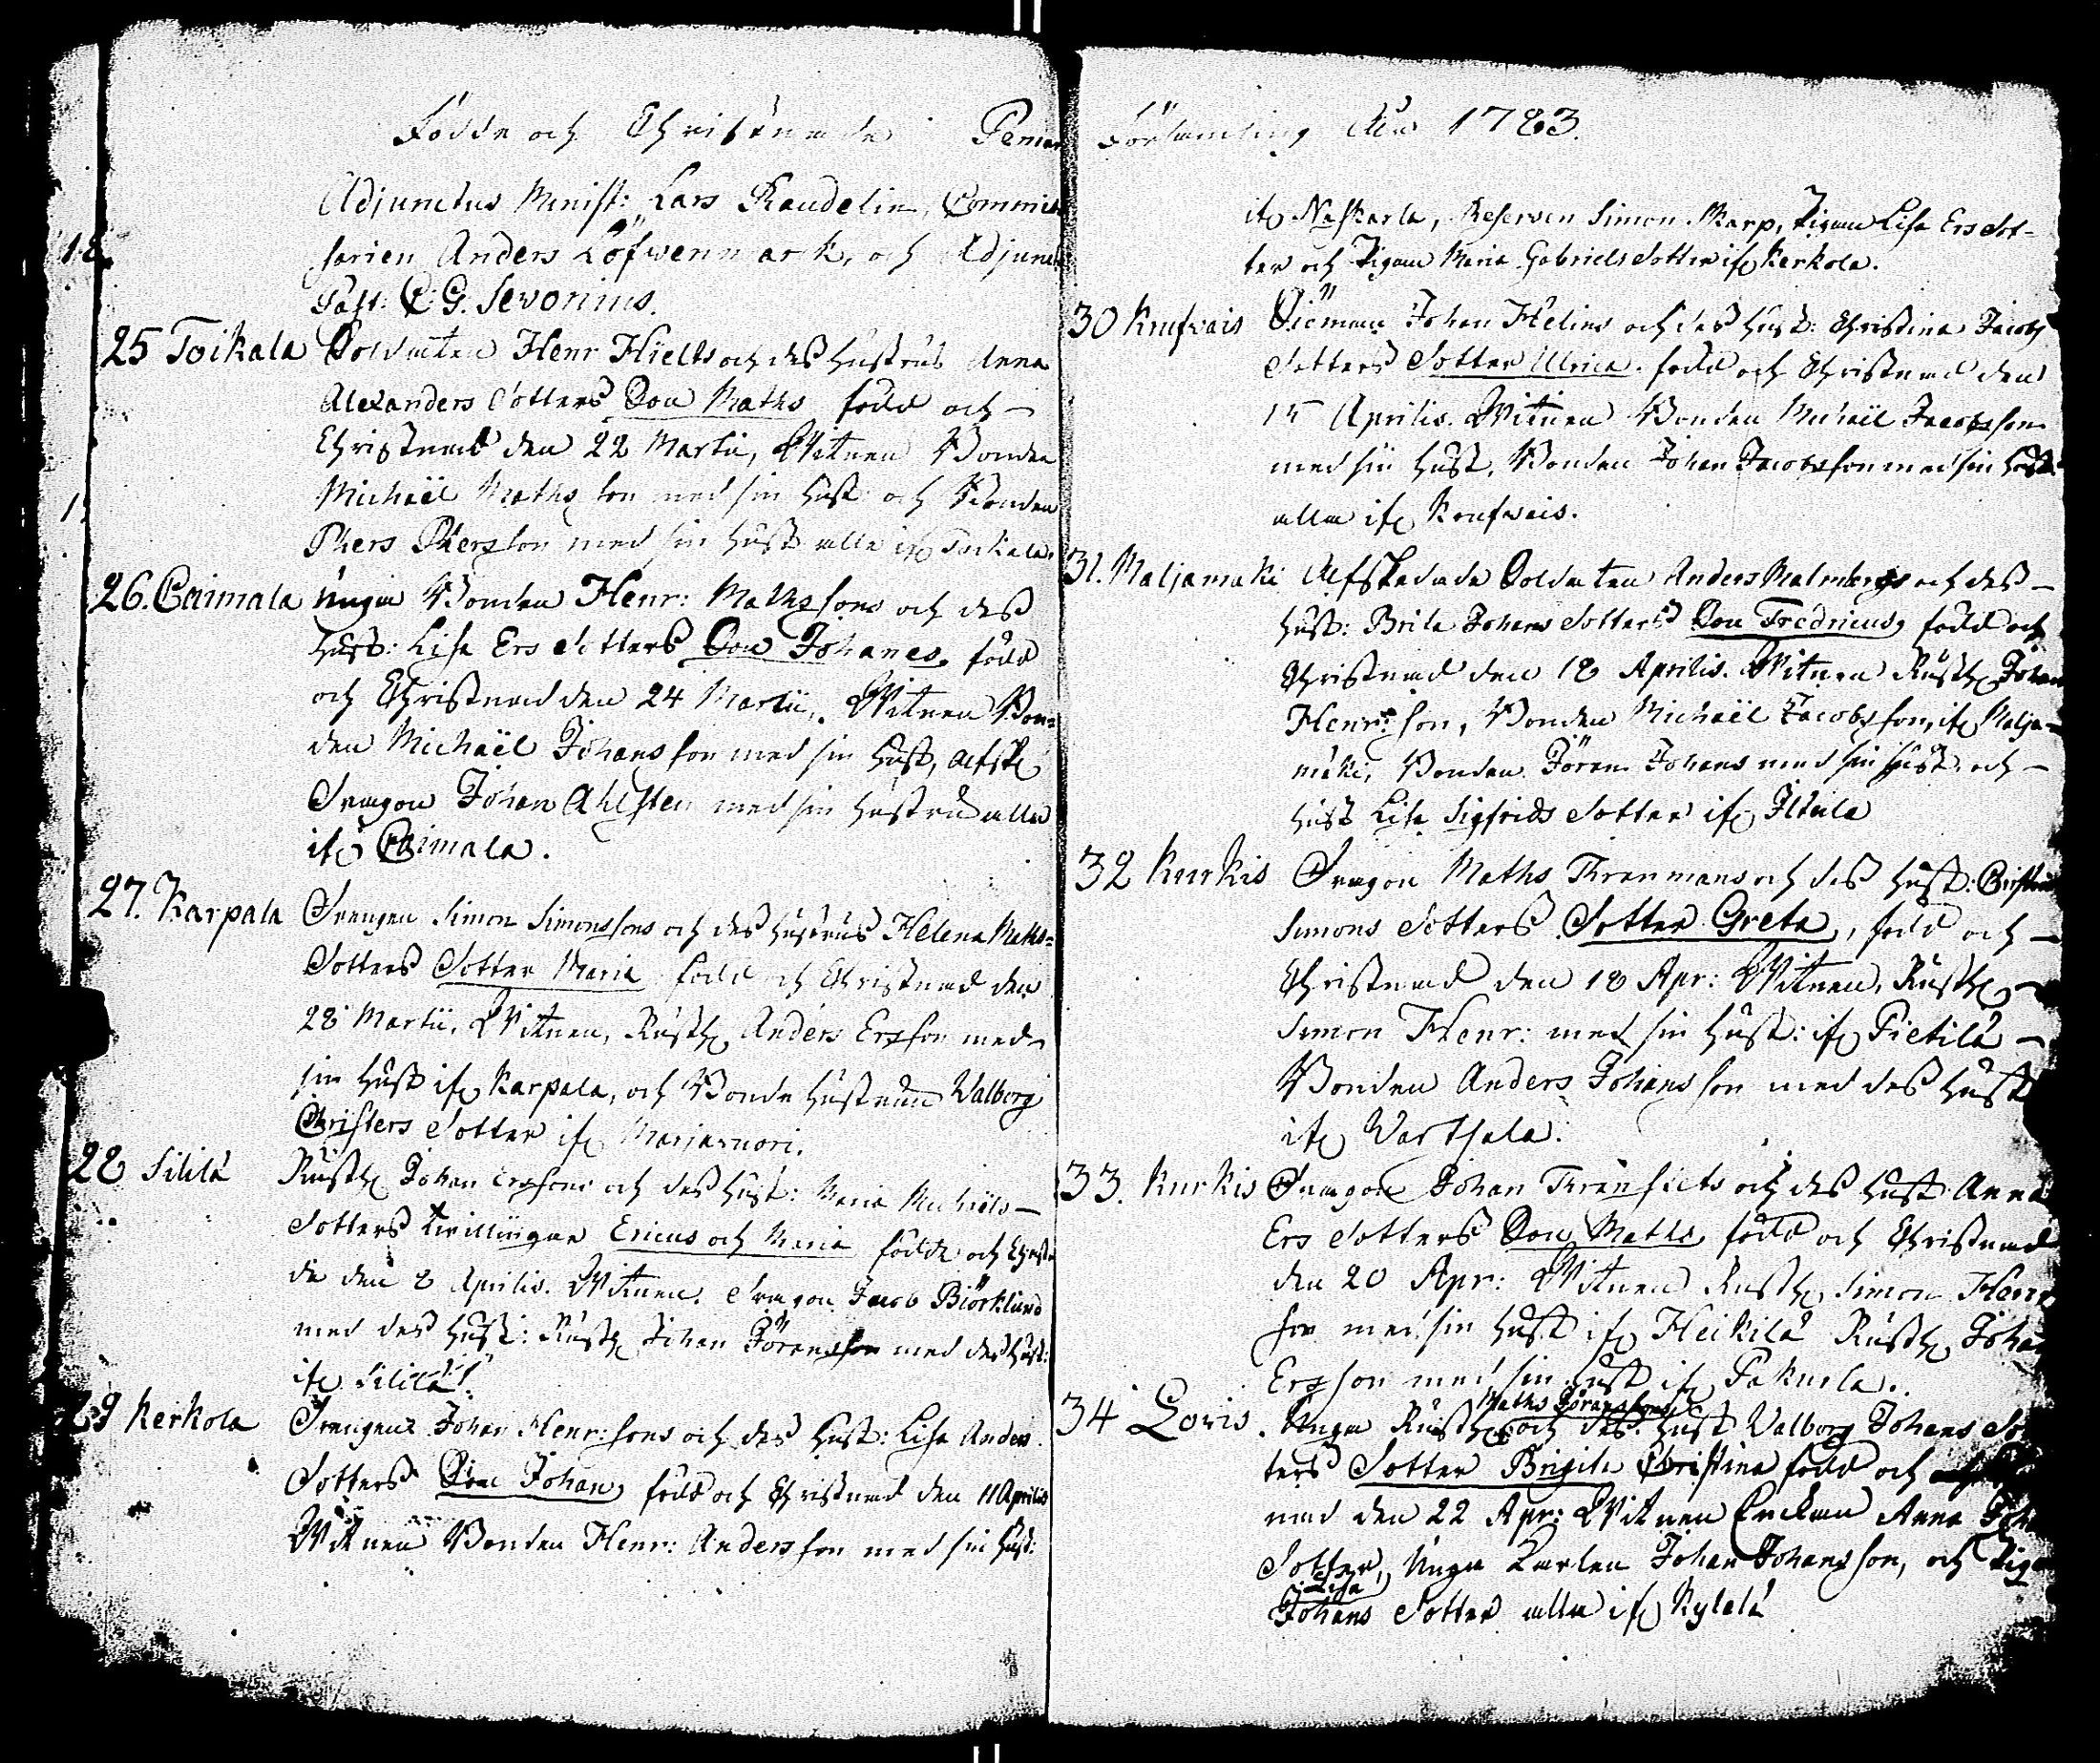 Födde och Christnade i Pemar
Adjunctus Minist: Lars Randelin, Commis-
sarien Anders Löfwenmark, och Adjunct
Past: C. G. Sevonius.
25 Toikala Soldaten Henr Hielts och des Hustrus Anna
Alexanders Dotters Son Maths född och
Christnad den 22 Martii, Witnen Bonden
Michaël Mathsson med sin Hust: och Bonden
Phers Phersson med sin Hust alla if. Toikala.
26. Caimala Unga Bonden Henr: Mathssons och des
Hust: Lisa Ers Dotters Son Johanes, född
och Christnad den 24 Martii. Witnen Bon-
den Michaël Johansson med sin Hust, Afsk.
Dragon Johan Ahlsten med sin Hustru alla
if. Caimala.
27. Karpala Drengen Simon Simonssons och des Hustrus Helena Maths-
Dotters Dotter Maria född och Christnad den
28 Martii. Witnen, Rusth. Anders Ersson med
sin Hust if. Karpala, och Bonde Hustrun Walborg
Christers Dotter if. Marjavuori.
28 Sililä Rusth. Johan Erssons och des Hust: Maria Michiels
Dotters Twillingar Ericus och Maria födde och Christna
de den 8 Aprilis. Witnen. Dragon Jacob Biörklund
med des Hust: Rusth. Johan Göransson med des Hust:
if. Sililä.
29 Kerkola Drengens Johan Henr:sons och des Hust: Lisa Anders
Dotters Son Johan, född och Christnad den 11 Aprilis
Witnen Bonden Henr: Andersson med sin Hust:
Församling Åhr 1783.
if. Naskarla, Reserven Simon Skarp, Pigan Lisa Ers Dot-
ter och Pigan Maria Gabriels Dotter if. Kerkola.
30 Krufvais Johan Helins och des Hust: Christina Jacobs
Dotters Dotter Ulrica. född och Christnad den
15 Aprilis. Witnen Bonden Michaël Jacobsson
med sin Hust, Bonden Johan Jacobsson med sin Hust:
alla if. Krufvais.
31. Maljamaki Afskedade Soldaten Anders Malmbergs och des
Hust: Brita Johans Dotters Son Fredricus, född och
Christnad den 18 Aprilis. Witnen Rusth. Johan
Henr:son, Bonden Michaël Jacobsson, if. Malja-
mäki, Bonden Jöran Johans med sin Hust. och
Hust Lisa Sigfrids Dotter if. Ittula
32 Kurkis Dragon Maths Thranmans och des Hust: Christina
Simons Dotters Dotter Greta, född och
Christnad den 18 Apr: Witnen, Rusth.
Simon Henr: med sin Hust: if. Pietilä
Bonden Anders Johansson med des Hust
if. Warthala.
33. Kurkis Dragon Johan Thranfelts och des Hust Anna
Ers Dotters Son Maths född och Christnad
den 20 Apr: Witnen Rusth. Simon Henr
son med sin Hust if. Heikilä Rusth. Johan
Ersson med sin Hust if. Pakurla.
Maths Göranssons
34 Loris. Unga Rusth. och des Hust Walborg Johans Dot
ters Dotter Brigita Christina född och
nad den 22 Apr: Witnen Enckan Anna Joh
Dotter, Unga Karlen Johan Johansson, och Piga
Lisa
Johans Dotter alla if. Kylelä